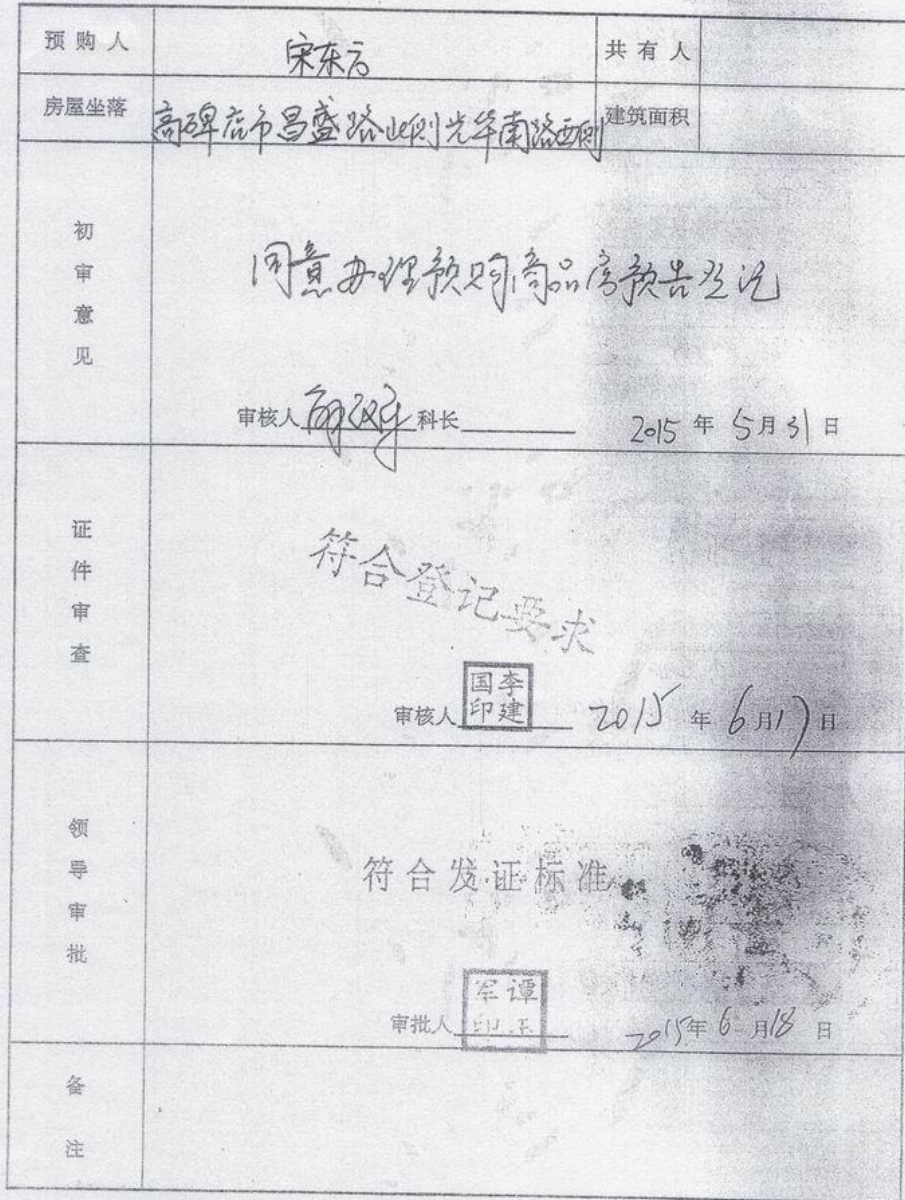 预购人 宋东云 共有人
房屋坐落 高碑店市昌盛路北侧光华南路西侧 建筑面积
初审意见
同意办理预购商品房预告登记
审核人 科长 2015 年 5月31日
证件审查
符合登记要求
审核人 国李印建 2015 年 6月17日
领导审批
符合发证标准
审批人 谭印 2015年6月18日
备注